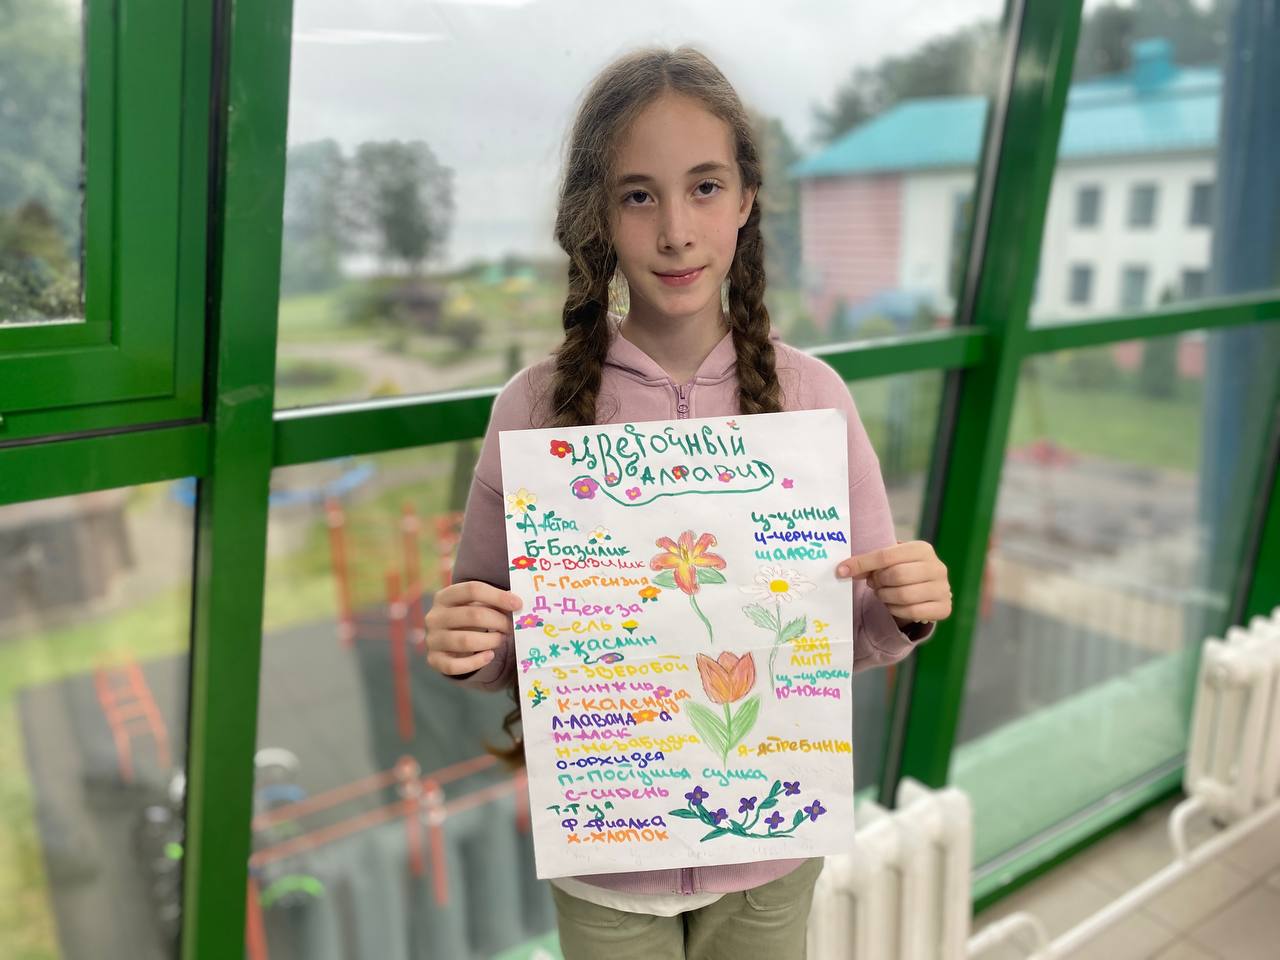 Цветочный
алфавит
А-Астра
Б-Базилик
В-Василик
Г-Гартензия
Д-Дереза
е-ель
Ж-Жасмин
З-Зверобой
и-инжир
К-Календула
Л-лаванда
М-Мак
Н-Незабудка
О-орхидея
П-Постушья сумка
С-сирень
Т-Туя
Ф-Фиалка
Х-Хлопок
Ц-циния
Ч-черника
Шалфей
Э-
Эвка
липт
Щ-щавель
Ю-Юкка
Я-ястребинка